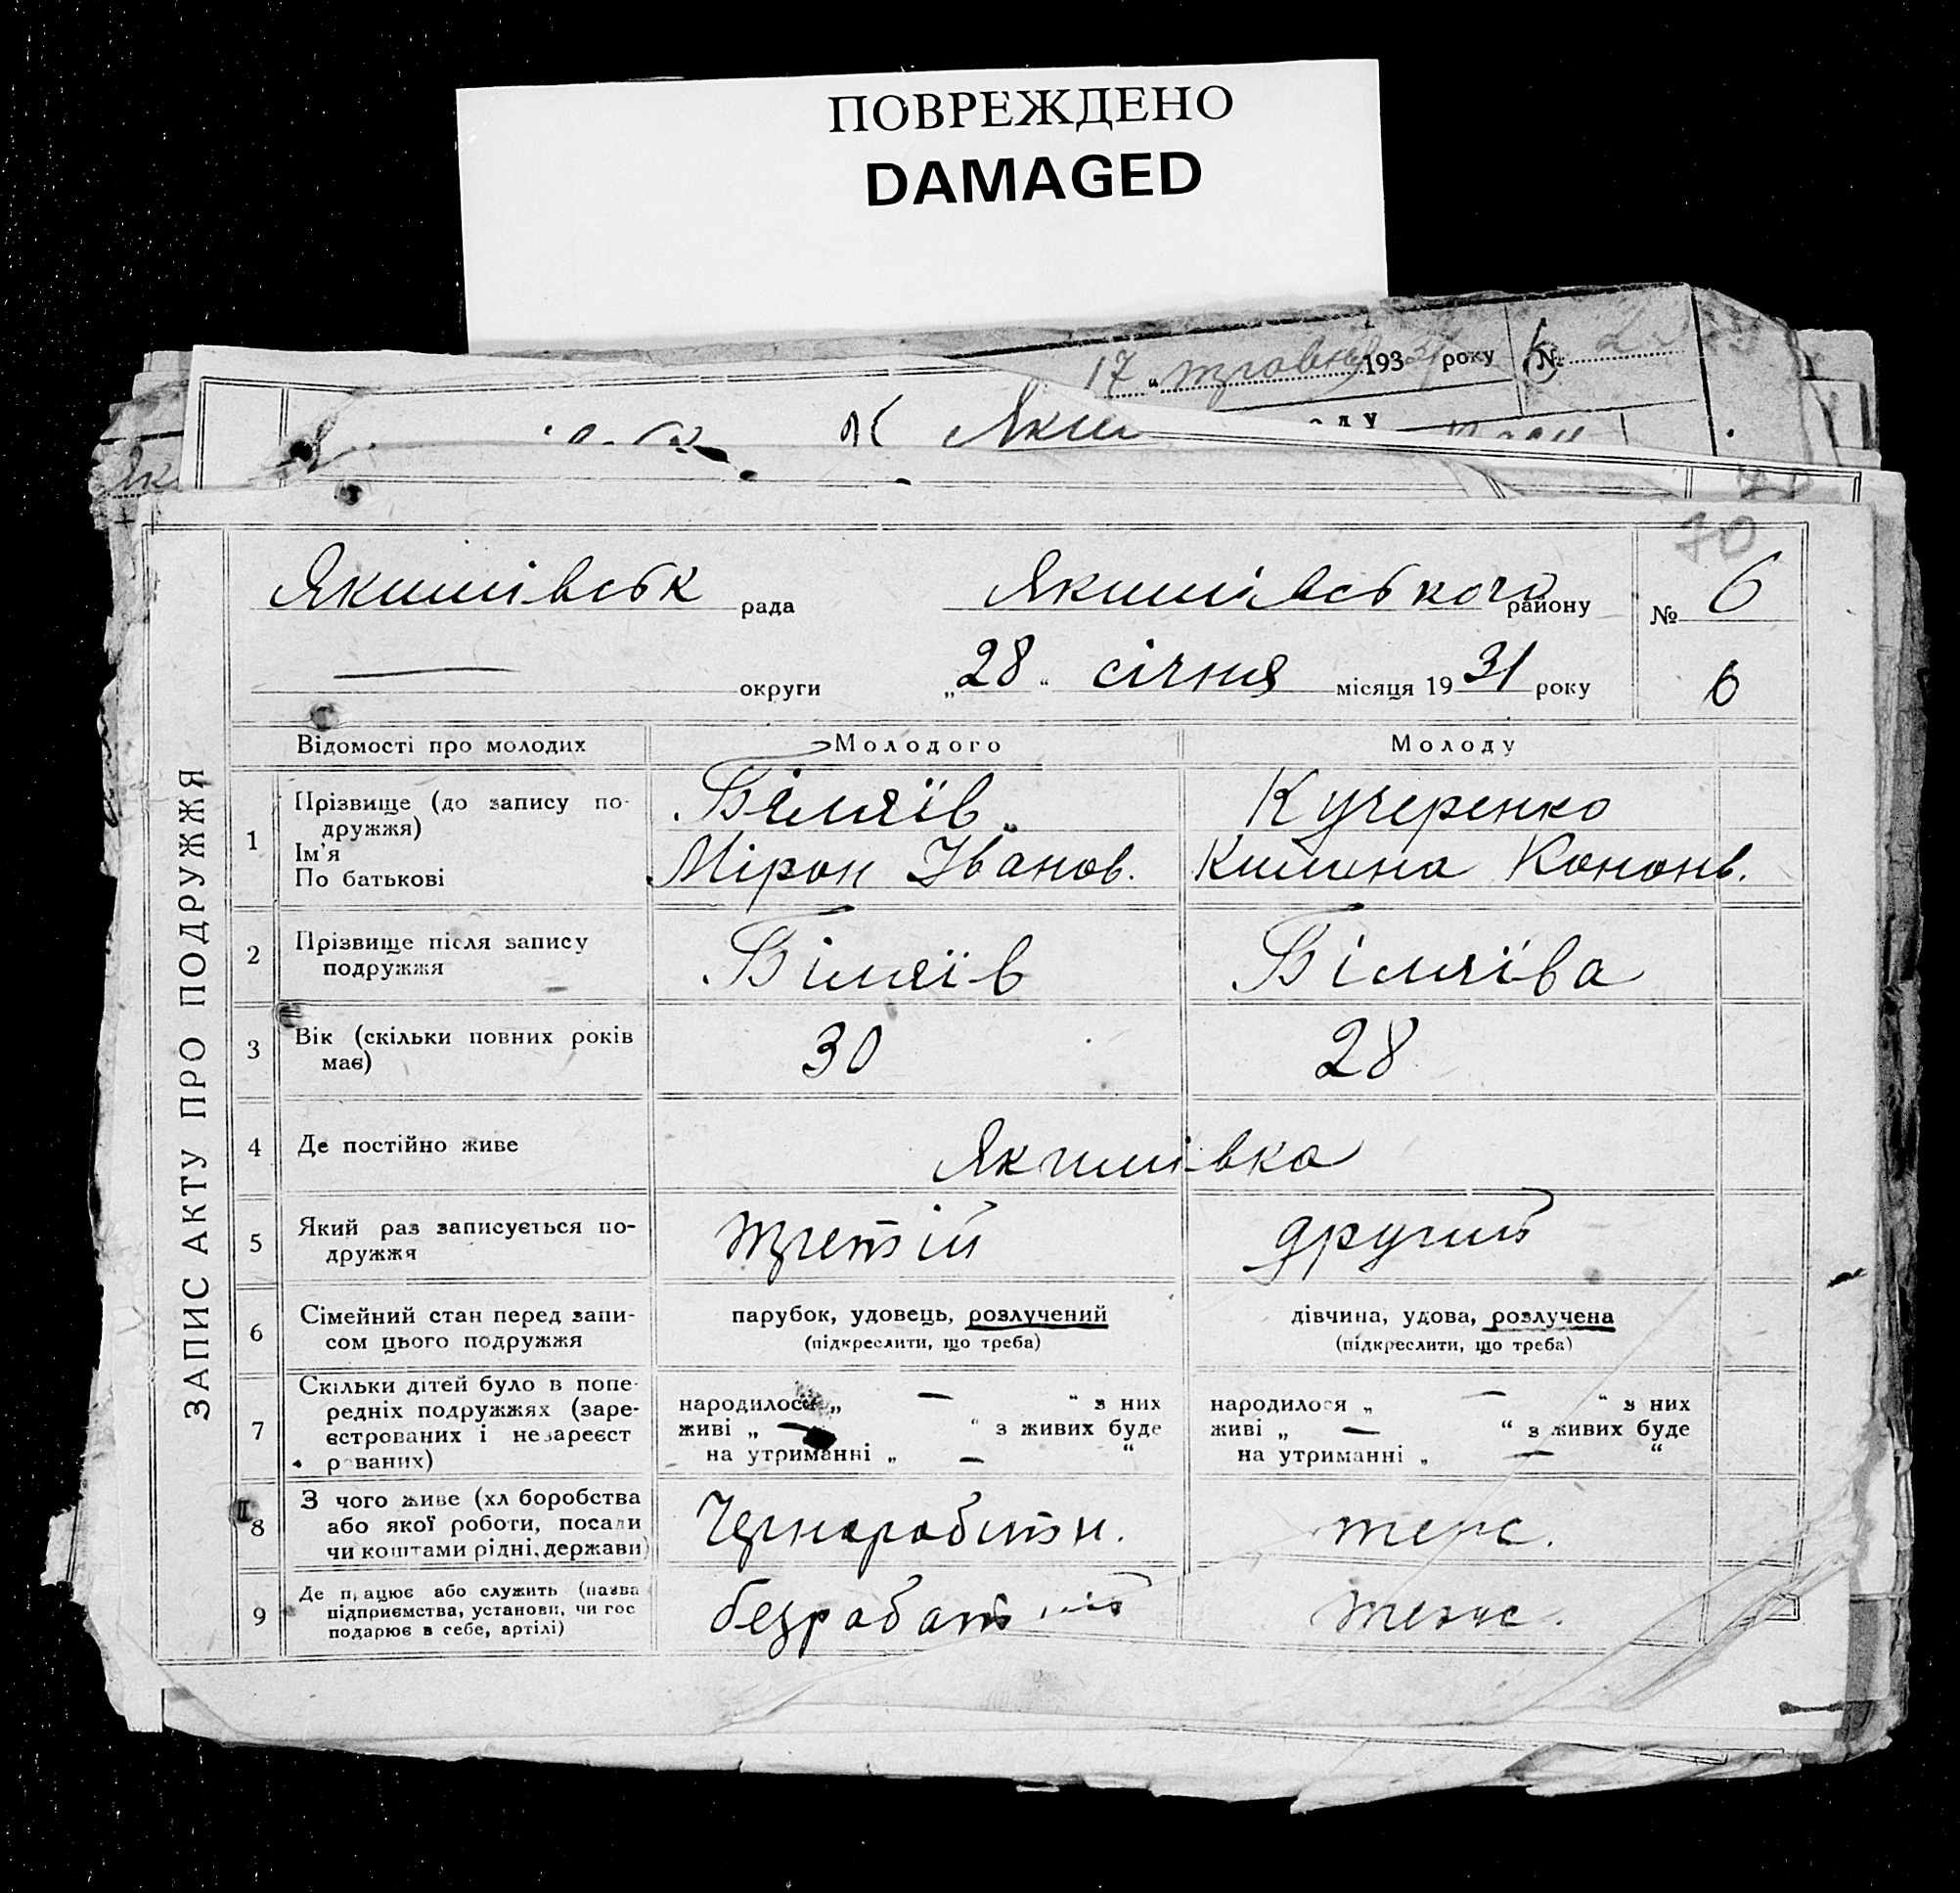 ПОВРЕЖДЕНО
DAMAGED
17 " травня 1931 року №
Яким
70
ЗАПИС АКТУ ПРО ПОДРУЖЖЯ
Якимівськ рада Якимівського району № 6
— округи „28" січня місяця 1931 року 6
Відомості про молодих Молодого Молоду
1 Прізвище (до запису по-
дружжя)
Біляїв Кучеренко
Ім'я
По батькові
Мірон Іванов. Килина Кононв.
2 Прізвище після запису
подружжя
Біляїв Біляіва
3 Вік (скільки повних років
має)
30 28
4 Де постійно живе Якимівка
5 Який раз записується по-
дружжя
третій другий
6 Сімейний стан перед запи-
сом цього подружжя
парубок, удовець, розлучений дівчина, удова, розлучена
(підкреслити, що треба) (підкреслити, що треба)
7 Скільки дітей було в попе-
редніх подружжях (заре-
єстрованих і незареєст
рованих)
народилося „ — " з них народилося „ — " з них
живі „ — " з живих буде живі „ — " з живих буде
на утриманні „ — " на утриманні „ — "
8 З чого живе (хліборобства
або якої роботи, посади
чи коштами рідні, держави)
Чорноробітн.
9 Де працює або служить (назва
підприємства, установи, чи гос
подарює в себе, артілі)
безработний